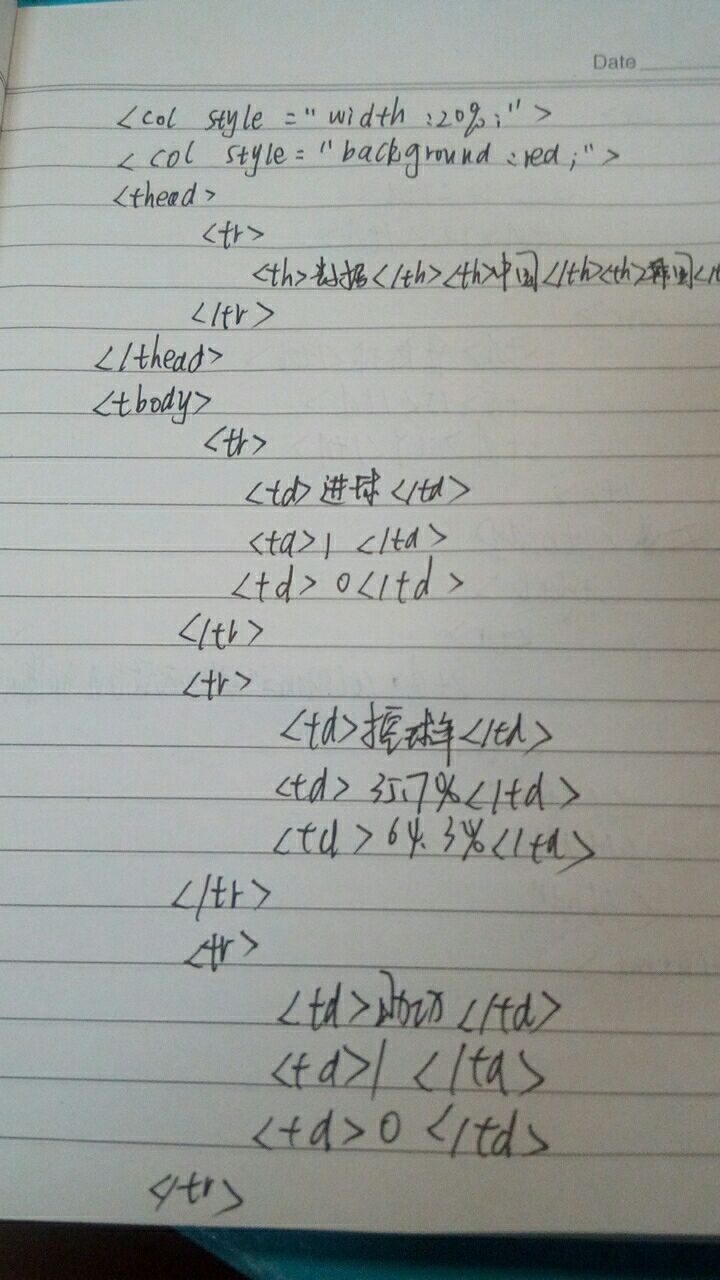 Date
<col style="width:20%;">
<col style="background:red;">
<thead>
<tr>
<th>数据</th><th>中国</th><th>韩国</t
</tr>
</thead>
<tbody>
<tr>
<td>进球</td>
<td>1</td>
<td>0</td>
</tr>
<tr>
<td>控球率</td>
<td>35.7%</td>
<td>64.3%</td>
</tr>
<tr>
<td></td>
<td>1</td>
<td>0</td>
</tr>